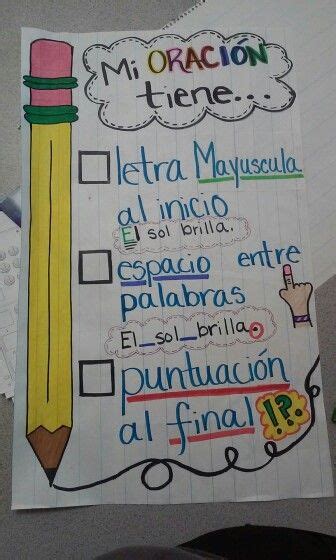 Mi ORACIÓN
tiene...
letra Mayuscula
al inicio
El sol brilla.
espacio entre
palabras
El_sol_brilla.
puntuación
al final !?.